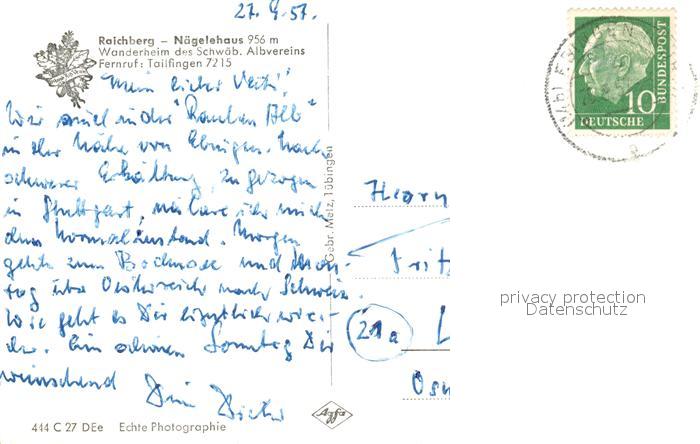 27.9.57.
Raichberg – Nägelehaus 956 m
Wanderheim des Schwäb. Albvereins
Fernruf: Tailfingen 7215
Mein lieber
Wir sind in der "Rauhen Alb"
in der Nähe von Ebingen. Nach
schwerer Erkältung, zugezogen
in Stuttgart, ich mich
dem Normalzustand. Morgen
gehts zum Bodensee und Mon-
tag über Oesterreich nach Schweiz.
Wie geht es Dir eigentlich wie-
der. Ein schönen Sonntag Dir
wünschend Dein
444 C 27 DEe Echte Photographie
Gebr. Metz, Tübingen
Agfa
Herrn
Frit
21a L
Osn
10
DEUTSCHE
BUNDESPOST
privacy protection
Datenschutz